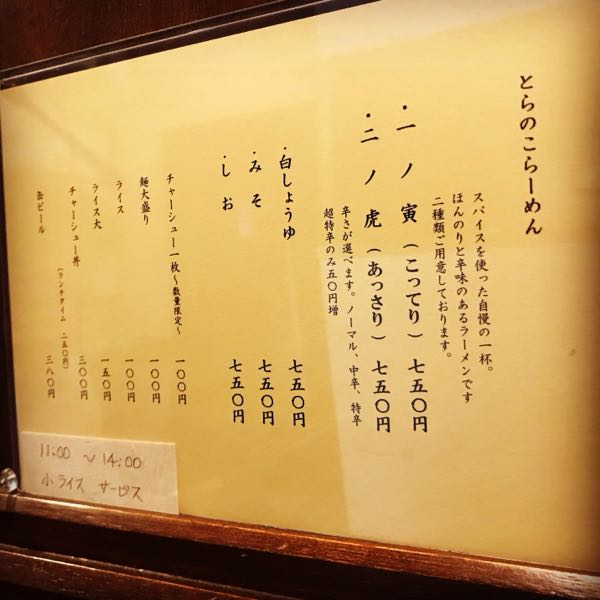 とらのこらーめん
スパイスを使った自慢の一杯。
ほんのりと辛味のあるラーメンです
二種類ご用意しております。
・一ノ寅（こってり）七五〇円
・二ノ虎（あっさり）七五〇円
辛さが選べます。ノーマル、中辛、特辛
超特辛のみ五〇円増
・白しょうゆ 七五〇円
・みそ 七五〇円
・しお 七五〇円
チャーシュー一枚〜数量限定〜 一〇〇円
麺大盛り 一〇〇円
ライス 一〇〇円
ライス大 一五〇円
チャーシュー丼 三〇〇円
（ランチタイム 二五〇円）
缶ビール 三八〇円
11:00 〜 14:00
小ライス サービス